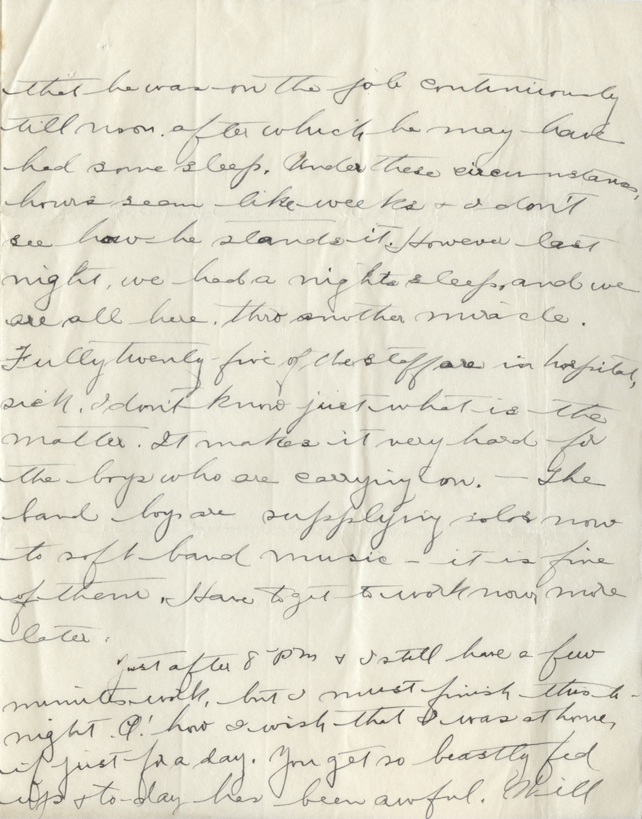 that he was on the job continuously
till noon. after which he may have
had some sleep. Under these circumstances,
hours seem like weeks & I don't
see how he stands it. However last
night, we had a nights sleep, and we
are all here. thro another miracle.
Fully twenty-five of the staff are in hospital,
sick. I don't know just what is the
matter. It makes it very hard for
the boys who are carrying on. — The
band boys are supplying solos now
to soft band music - it is fine
of them. Have to get to work now, more
later.
Just after 8 PM & I still have a few
minutes work, but I must finish this to-
night. O! how I wish that I was at home,
if just for a day. You get so beastly fed
up & to-day has been awful. Will